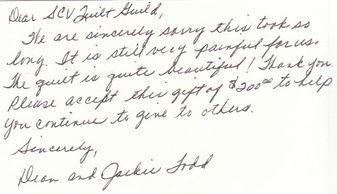 Dear SCV Quilt Guild,
We are sincerely sorry this took so
long. It is still very painful for us.
The quilt is quite beautiful! Thank you.
Please accept this gift of $200⁰⁰ to help
you continue to give to others.
Sincerely,
Dean and Jackie Todd